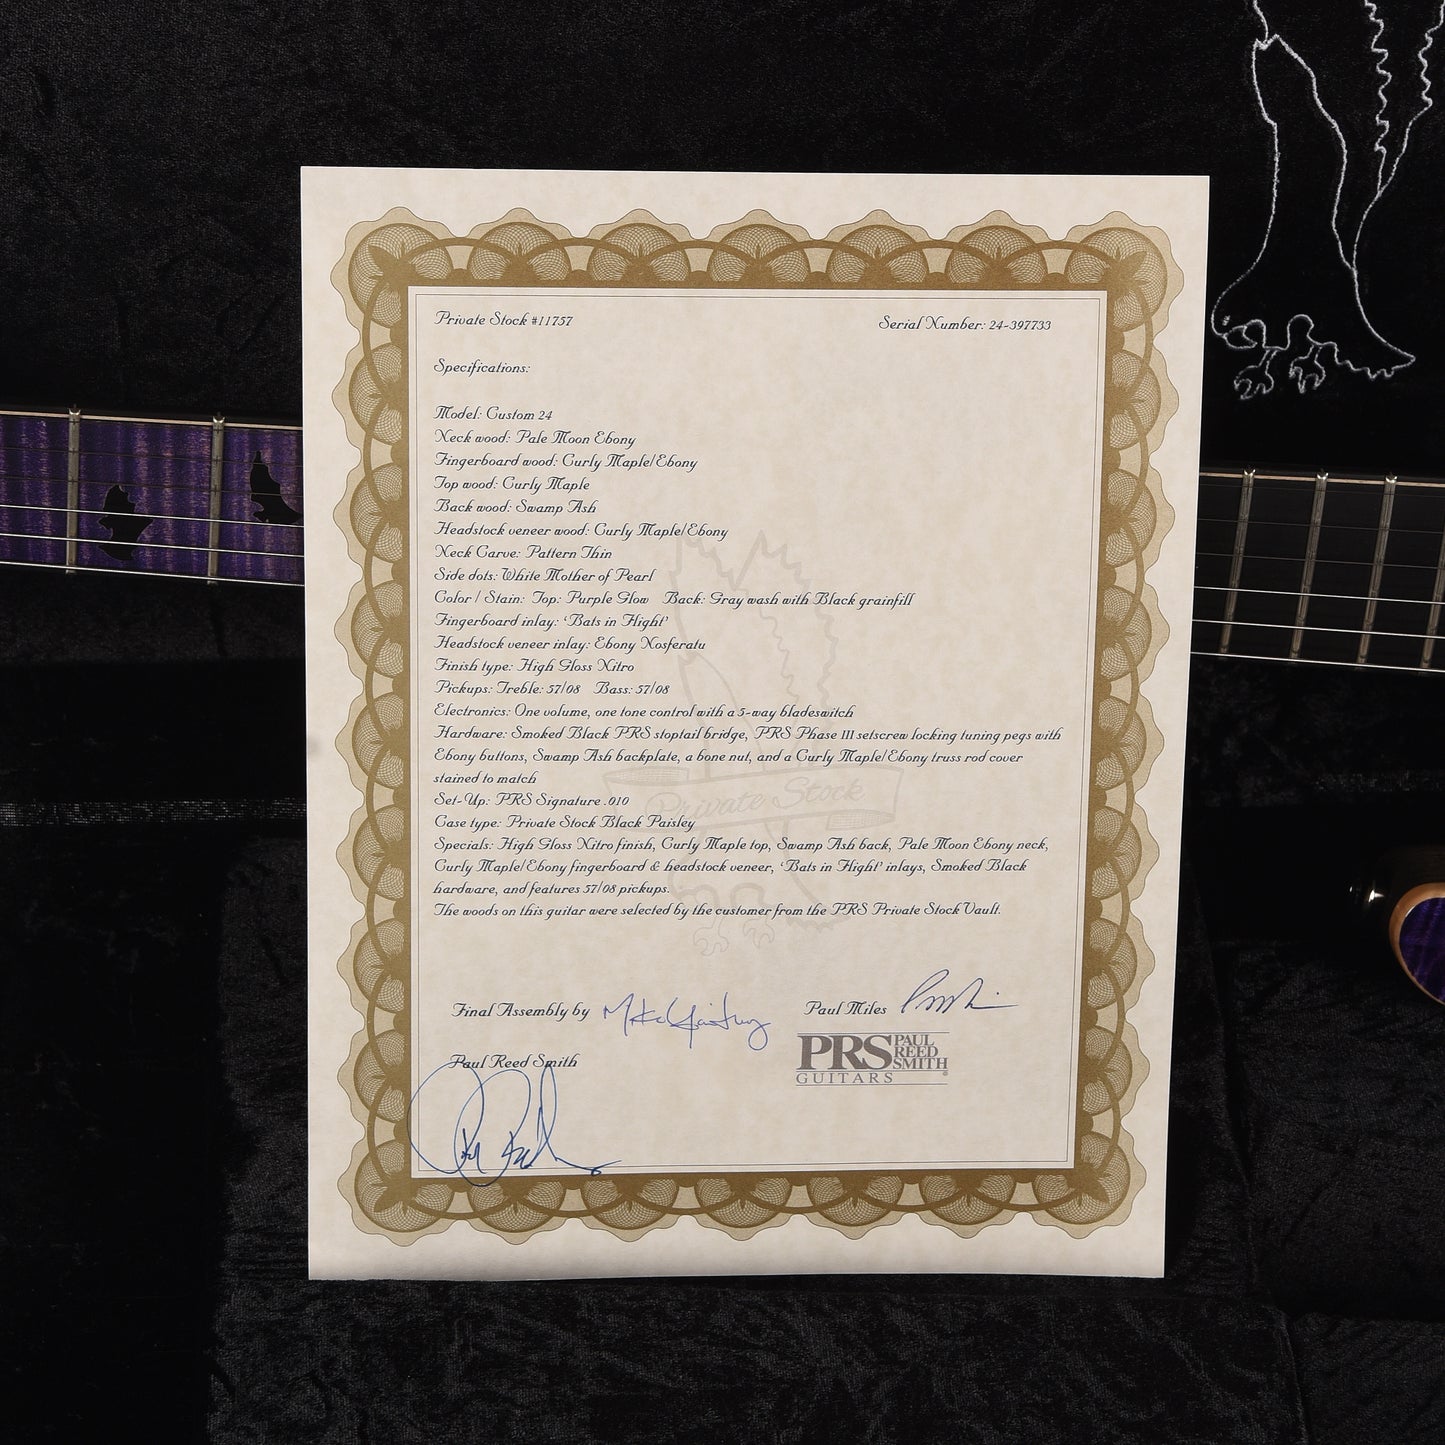 Private Stock #11757
Serial Number: 24-397733
Specifications:
Model: Custom 24
Neck wood: Pale Moon Ebony
Fingerboard wood: Curly Maple/Ebony
Top wood: Curly Maple
Back wood: Swamp Ash
Headstock veneer wood: Curly Maple/Ebony
Neck Carve: Pattern Thin
Side dots: White Mother of Pearl
Color / Stain: Top: Purple Glow Back: Gray wash with Black grainfill
Fingerboard inlay: 'Bats in Flight'
Headstock veneer inlay: Ebony Nosferatu
Finish type: High Gloss Nitro
Pickups: Treble: 57/08 Bass: 57/08
Electronics: One volume, one tone control with a 5-way bladeswitch
Hardware: Smoked Black PRS stoptail bridge, PRS Phase III setscrew locking tuning pegs with
Ebony buttons, Swamp Ash backplate, a bone nut, and a Curly Maple/Ebony truss rod cover
stained to match
Set-Up: PRS Signature .010
Case type: Private Stock Black Paisley
Specials: High Gloss Nitro finish, Curly Maple top, Swamp Ash back, Pale Moon Ebony neck,
Curly Maple/Ebony fingerboard & headstock veneer, 'Bats in Flight' inlays, Smoked Black
hardware, and features 57/08 pickups.
The woods on this guitar were selected by the customer from the PRS Private Stock Vault.
Private Stock
Final Assembly by
Paul Miles
Paul Reed Smith
PRS PAUL REED SMITH
GUITARS